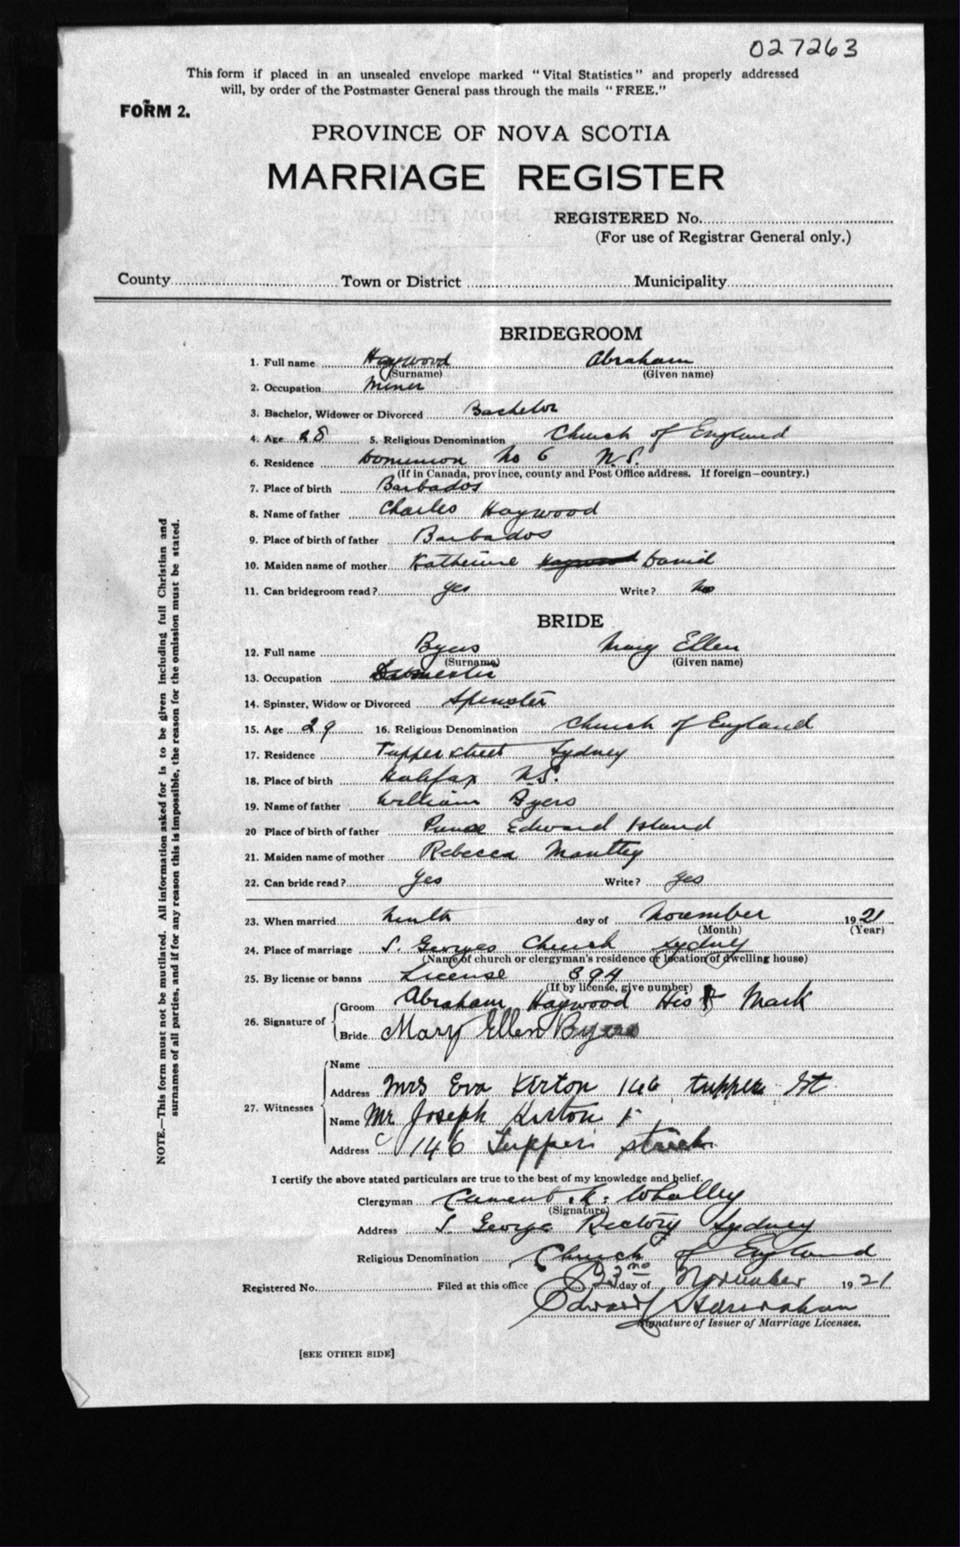 027263
This form if placed in an unsealed envelope marked "Vital Statistics" and properly addressed
will, by order of the Postmaster General pass through the mails "FREE."
FORM 2.
PROVINCE OF NOVA SCOTIA
MARRIAGE REGISTER
REGISTERED No.
(For use of Registrar General only.)
County Town or District Municipality
BRIDEGROOM
1. Full name Haywood Abraham
(Surname) (Given name)
2. Occupation Miner
3. Bachelor, Widower or Divorced Bachelor
4. Age 28 5. Religious Denomination Church of England
6. Residence Dominion No 6 N.S.
(If in Canada, province, county and Post Office address. If foreign—country.)
7. Place of birth Barbados
8. Name of father Charles Haywood
9. Place of birth of father Barbados
10. Maiden name of mother Katherine Haywood David
11. Can bridegroom read? Yes Write? No
BRIDE
12. Full name Byers Mary Ellen
(Surname) (Given name)
13. Occupation Domestic
14. Spinster, Widow or Divorced Spinster
15. Age 29 16. Religious Denomination Church of England
17. Residence Tupper Street Sydney
18. Place of birth Halifax N.S.
19. Name of father William Byers
20 Place of birth of father Prince Edward Island
21. Maiden name of mother Rebecca
22. Can bride read? Yes Write? Yes
23. When married ninth day of November 1921
(Month) (Year)
24. Place of marriage S. Georges Church Sydney
(Name of church or clergyman's residence or location of dwelling house)
25. By license or banns License 894
(If by license, give number)
26. Signature of
Groom Abraham Haywood His Mark
Bride Mary Ellen Byers
27. Witnesses
Name
Address Mrs Eva Kirton 146 tupper St
Name Mr Joseph Kirton
Address 146 Tupper street
I certify the above stated particulars are true to the best of my knowledge and belief.
Clergyman Clement Whalley
(Signature)
Address S. George Rectory Sydney
Religious Denomination Church of England
Registered No. Filed at this office 22nd day of November 1921
Edward
Signature of Issuer of Marriage Licenses.
[SEE OTHER SIDE]
NOTE.—This form must not be mutilated. All information asked for is to be given including full Christian and
surnames of all parties, and if for any reason this is impossible, the reason for the omission must be stated.